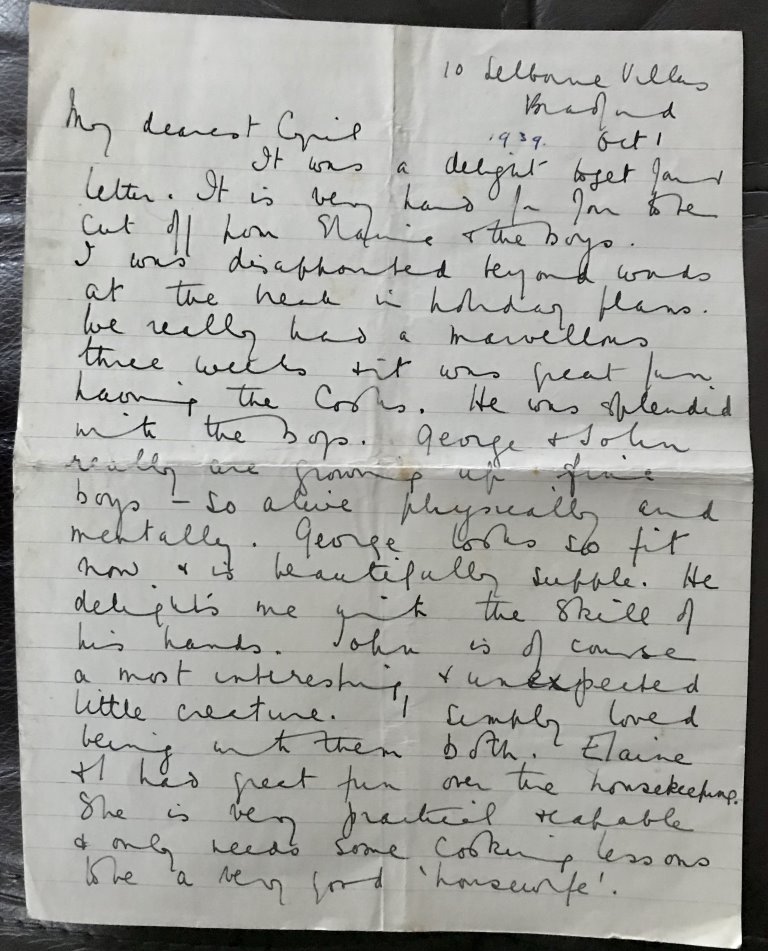 10 Selborne Villas
Bradford
1939. Oct 1
My dearest Cyril
It was a delight to get your
letter. It is very hard for you to be
cut off from Elaine & the boys.
I was disappointed beyond words
at the break in holiday plans.
We really had a marvellous
three weeks & it was great fun
having the Cooks. He was splendid
with the boys. George & John
really are growing up fine
boys – so alive physically and
mentally. George looks so fit
now & is beautifully supple. He
delights me with the skill of
his hands. John is of course
a most interesting & unexpected
little creature. I simply loved
being with them both. Elaine
& I had great fun over the housekeeping.
She is very practical & capable
& only needs some cooking lessons
to be a very good 'housewife'.